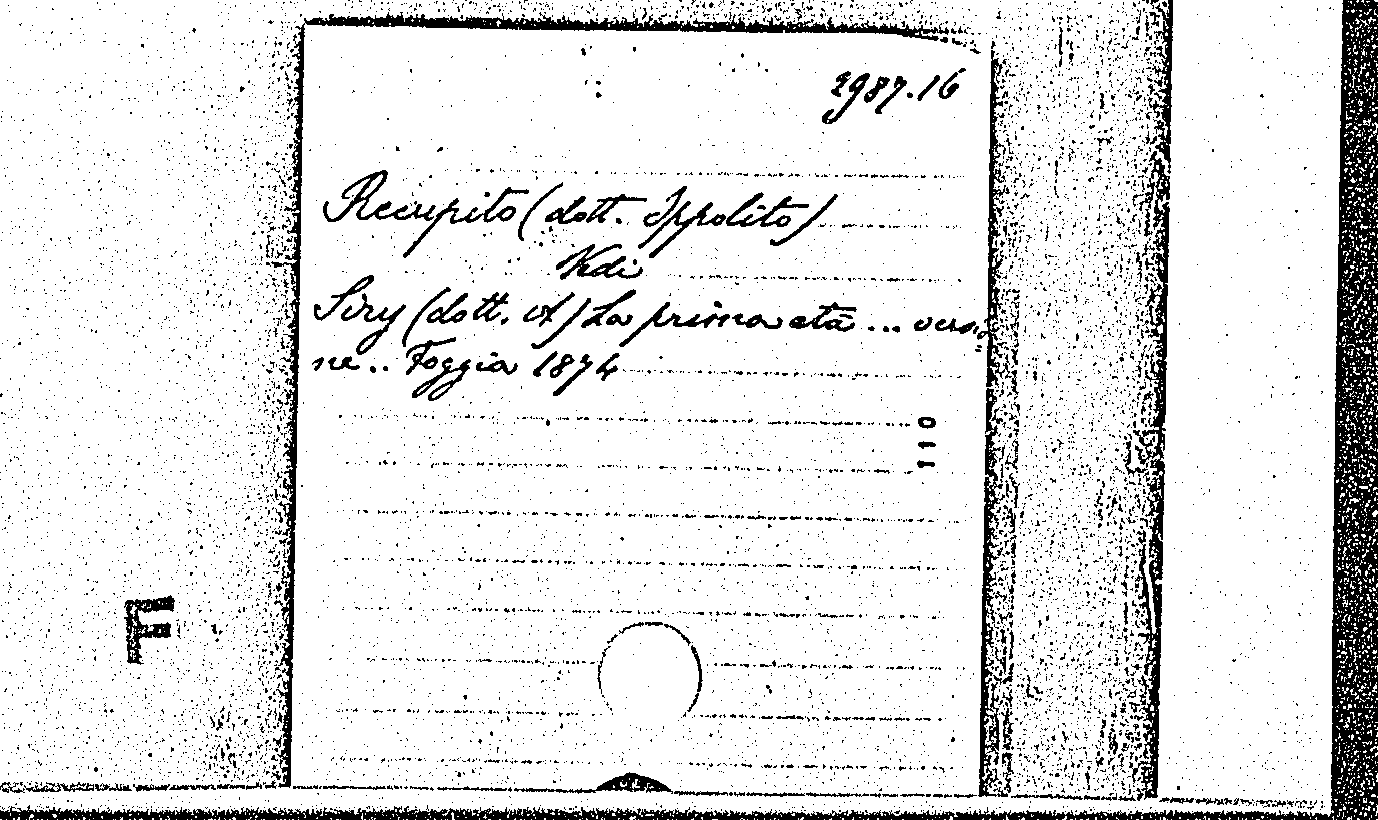 2987.16
Recupito (dott. Ippolito)
Vedi
Siry (dott. A) La prima età ... versio
ne .. Foggia 1874
110
F